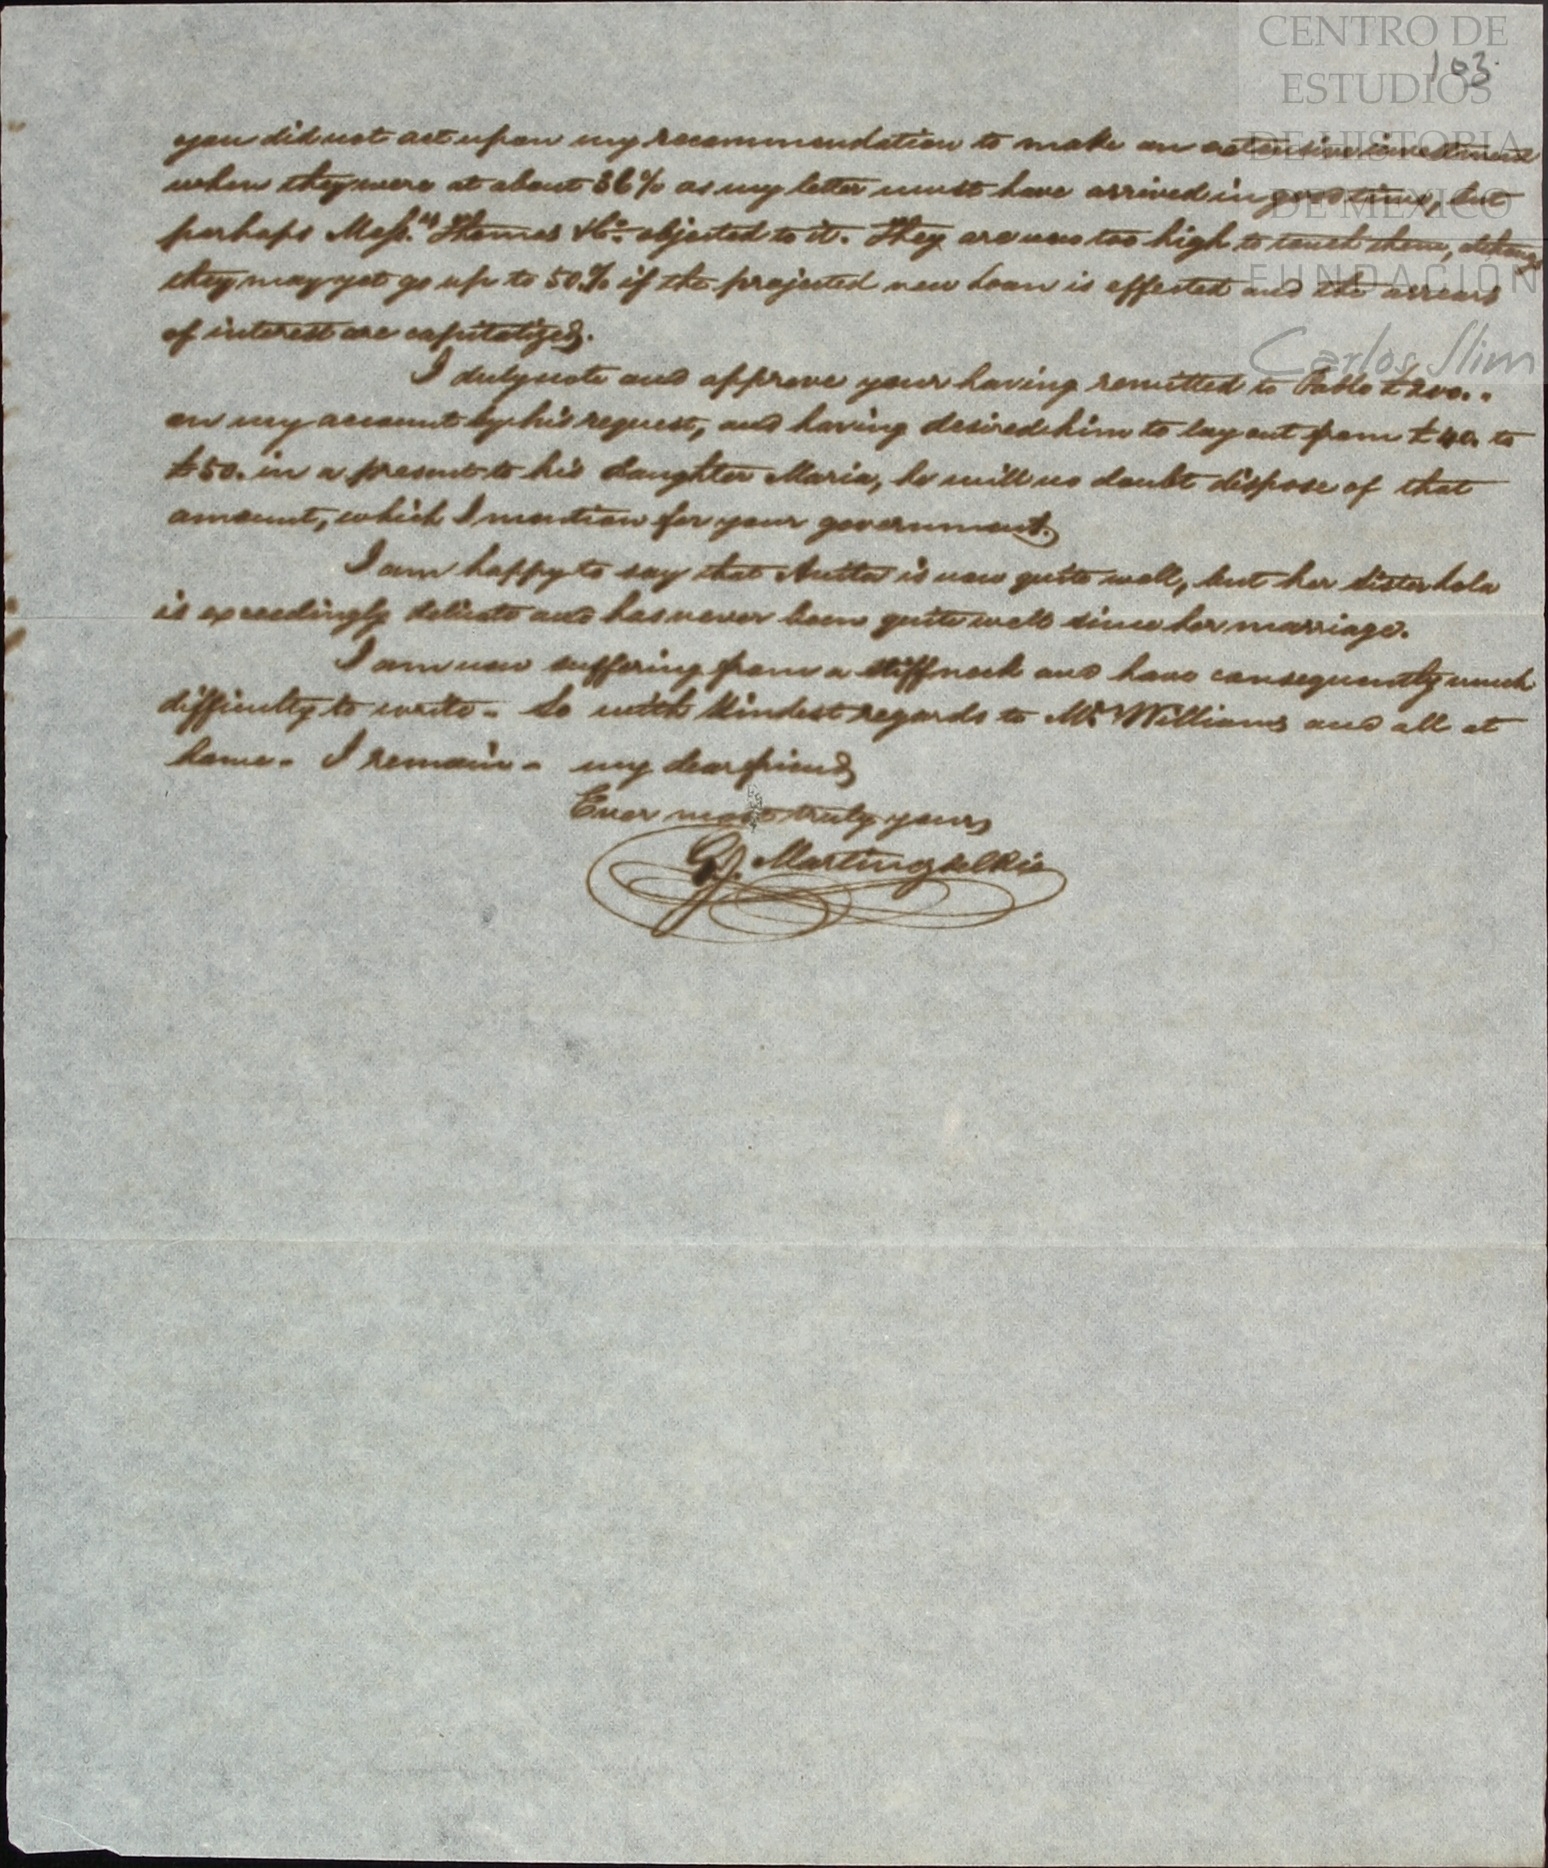 CENTRO DE
ESTUDIOS
DE HISTORIA
DE MEXICO
FUNDACIÓN
Carlos Slim
103.
you did not act upon my recommendation to make an extensive investment
when they were at about 36% as my letter must have arrived in good time, but
perhaps Messrs Thomas & Co. objected to it. They are now too high to touch them, although
they may yet go up to 50% if the projected new Loan is effected and the arrears
of interest are capitalized.
I duly note and approve your having remitted to Pablo £200..
on my account by his request, and having desired him to lay out from £40. to
£50. in a present to his daughter Maria, he will no doubt dispose of that
amount, which I mention for your government.
I am happy to say that Anita is now quite well, but her sister Lola
is exceedingly delicate and has never been quite well since her marriage.
I am now suffering from a stiff neck and have consequently much
difficulty to write - So with kindest regards to Mr Williams and all at
home - I remain - my dear friend
Ever most truly yours
G. J. Martinez del Rio